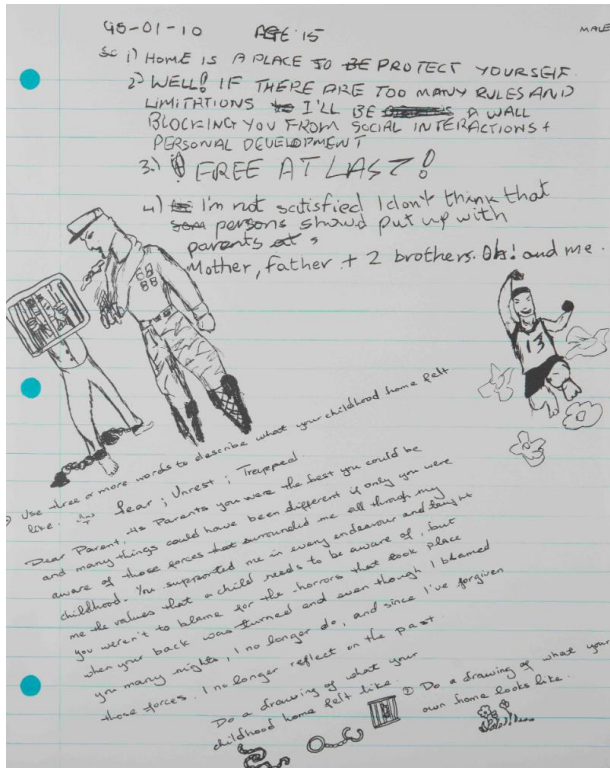 95-01-10 AGE: 15 MALE
1) HOME IS A PLACE TO BE PROTECT YOURSELF.
2) WELL! IF THERE ARE TOO MANY RULES AND
LIMITATIONS I'LL BE A WALL
BLOCKING YOU FROM SOCIAL INTERACTIONS +
PERSONAL DEVELOPMENT
3.) FREE AT LAST!
4) I'm not satisfied I don't think that
persons should put up with
parents
Mother, Father + 2 brothers. Oh! and me.
13
Use three or more words to describe what your childhood home felt
like. Fear ; Unrest ; Trapped
Dear Parent, as Parents you were the best you could be
and many things could have been different if only you were
aware of those forces that surrounded me all through my
childhood. You supported me in every endeavour and taught
me the values that a child needs to be aware of, but
you weren't to blame for the horrors that took place
when your back was turned and even though I blamed
you many nights, I no longer do, and since I've forgiven
those forces. I no longer reflect on the past.
Do a drawing of what your
childhood home felt like.
Do a drawing of what your
own home looks like.